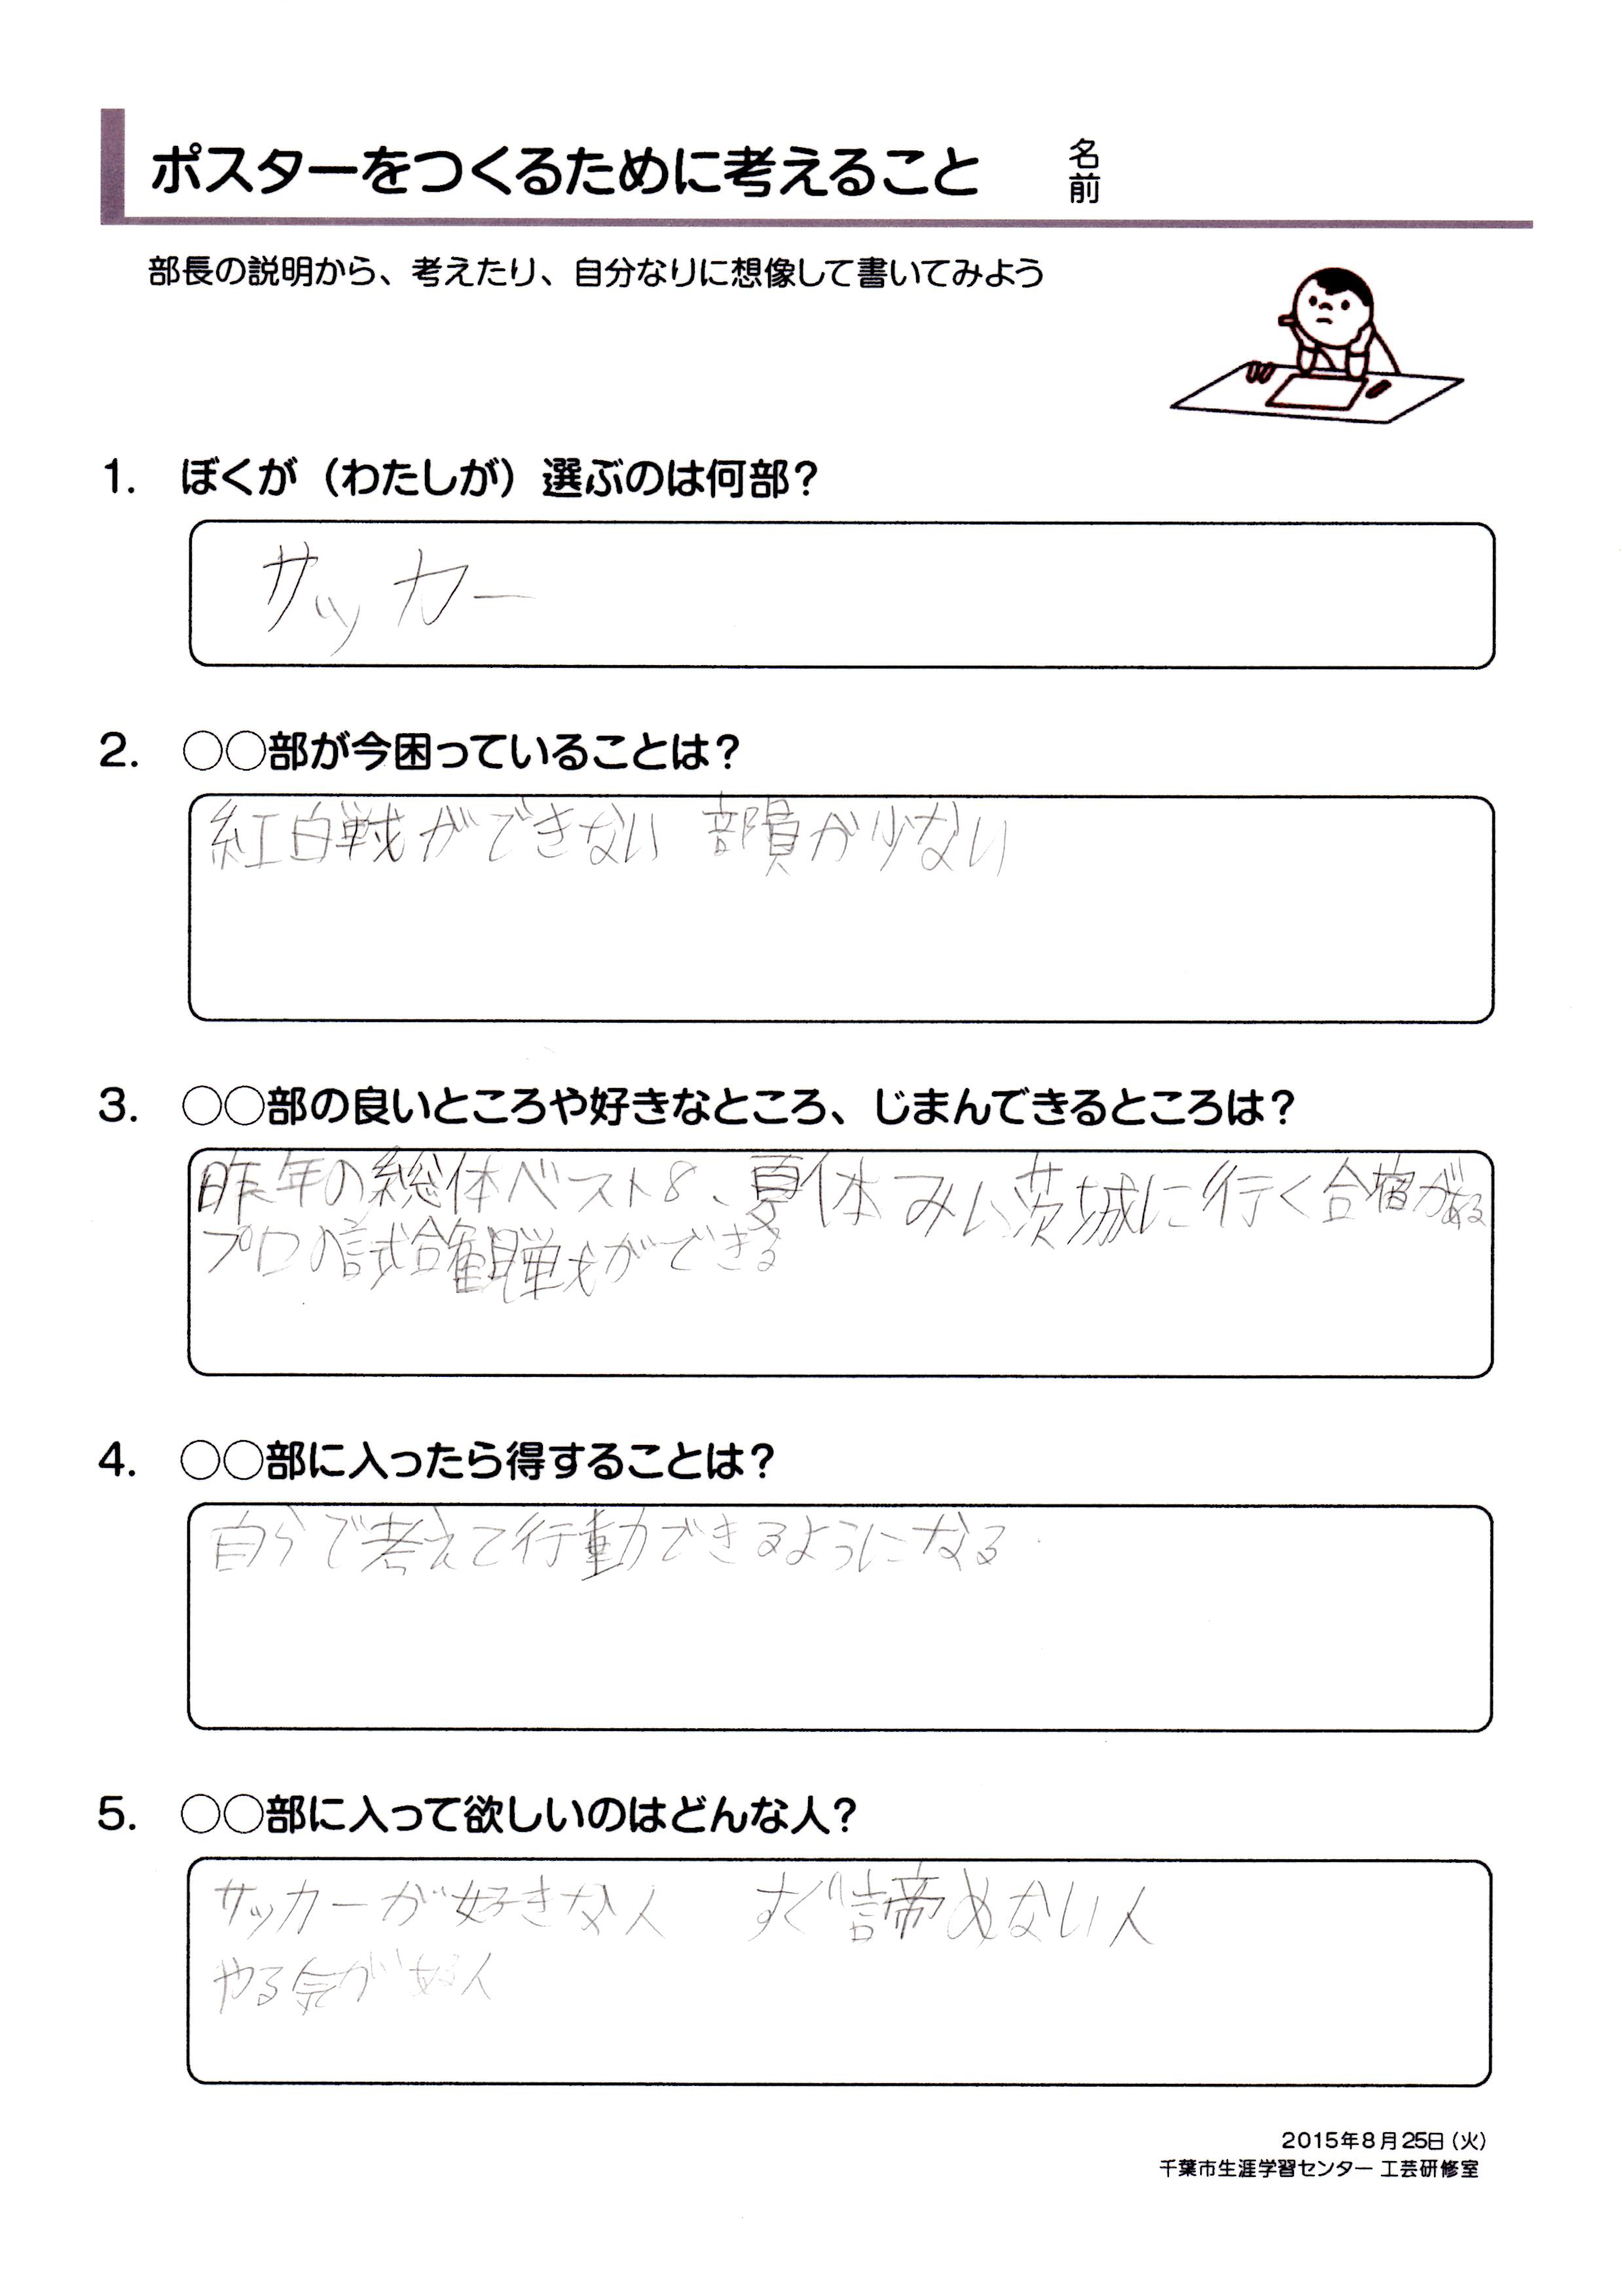 ポスターをつくるために考えること
名前
部長の説明から、考えたり、自分なりに想像して書いてみよう
1. ぼくが（わたしが）選ぶのは何部？
サッカー
2. ○○部が今困っていることは？
紅白戦ができない 部員が少ない
3. ○○部の良いところや好きなところ、じまんできるところは？
昨年の総体ベスト8、夏休みに茨城に行く合宿がある
プロの試合観戦ができる
4. ○○部に入ったら得することは？
自分で考えて行動できるようになる
5. ○○部に入って欲しいのはどんな人？
サッカーが好きな人 すぐ諦めない人
やる気が人
2015年8月25日（火）
千葉市生涯学習センター 工芸研修室